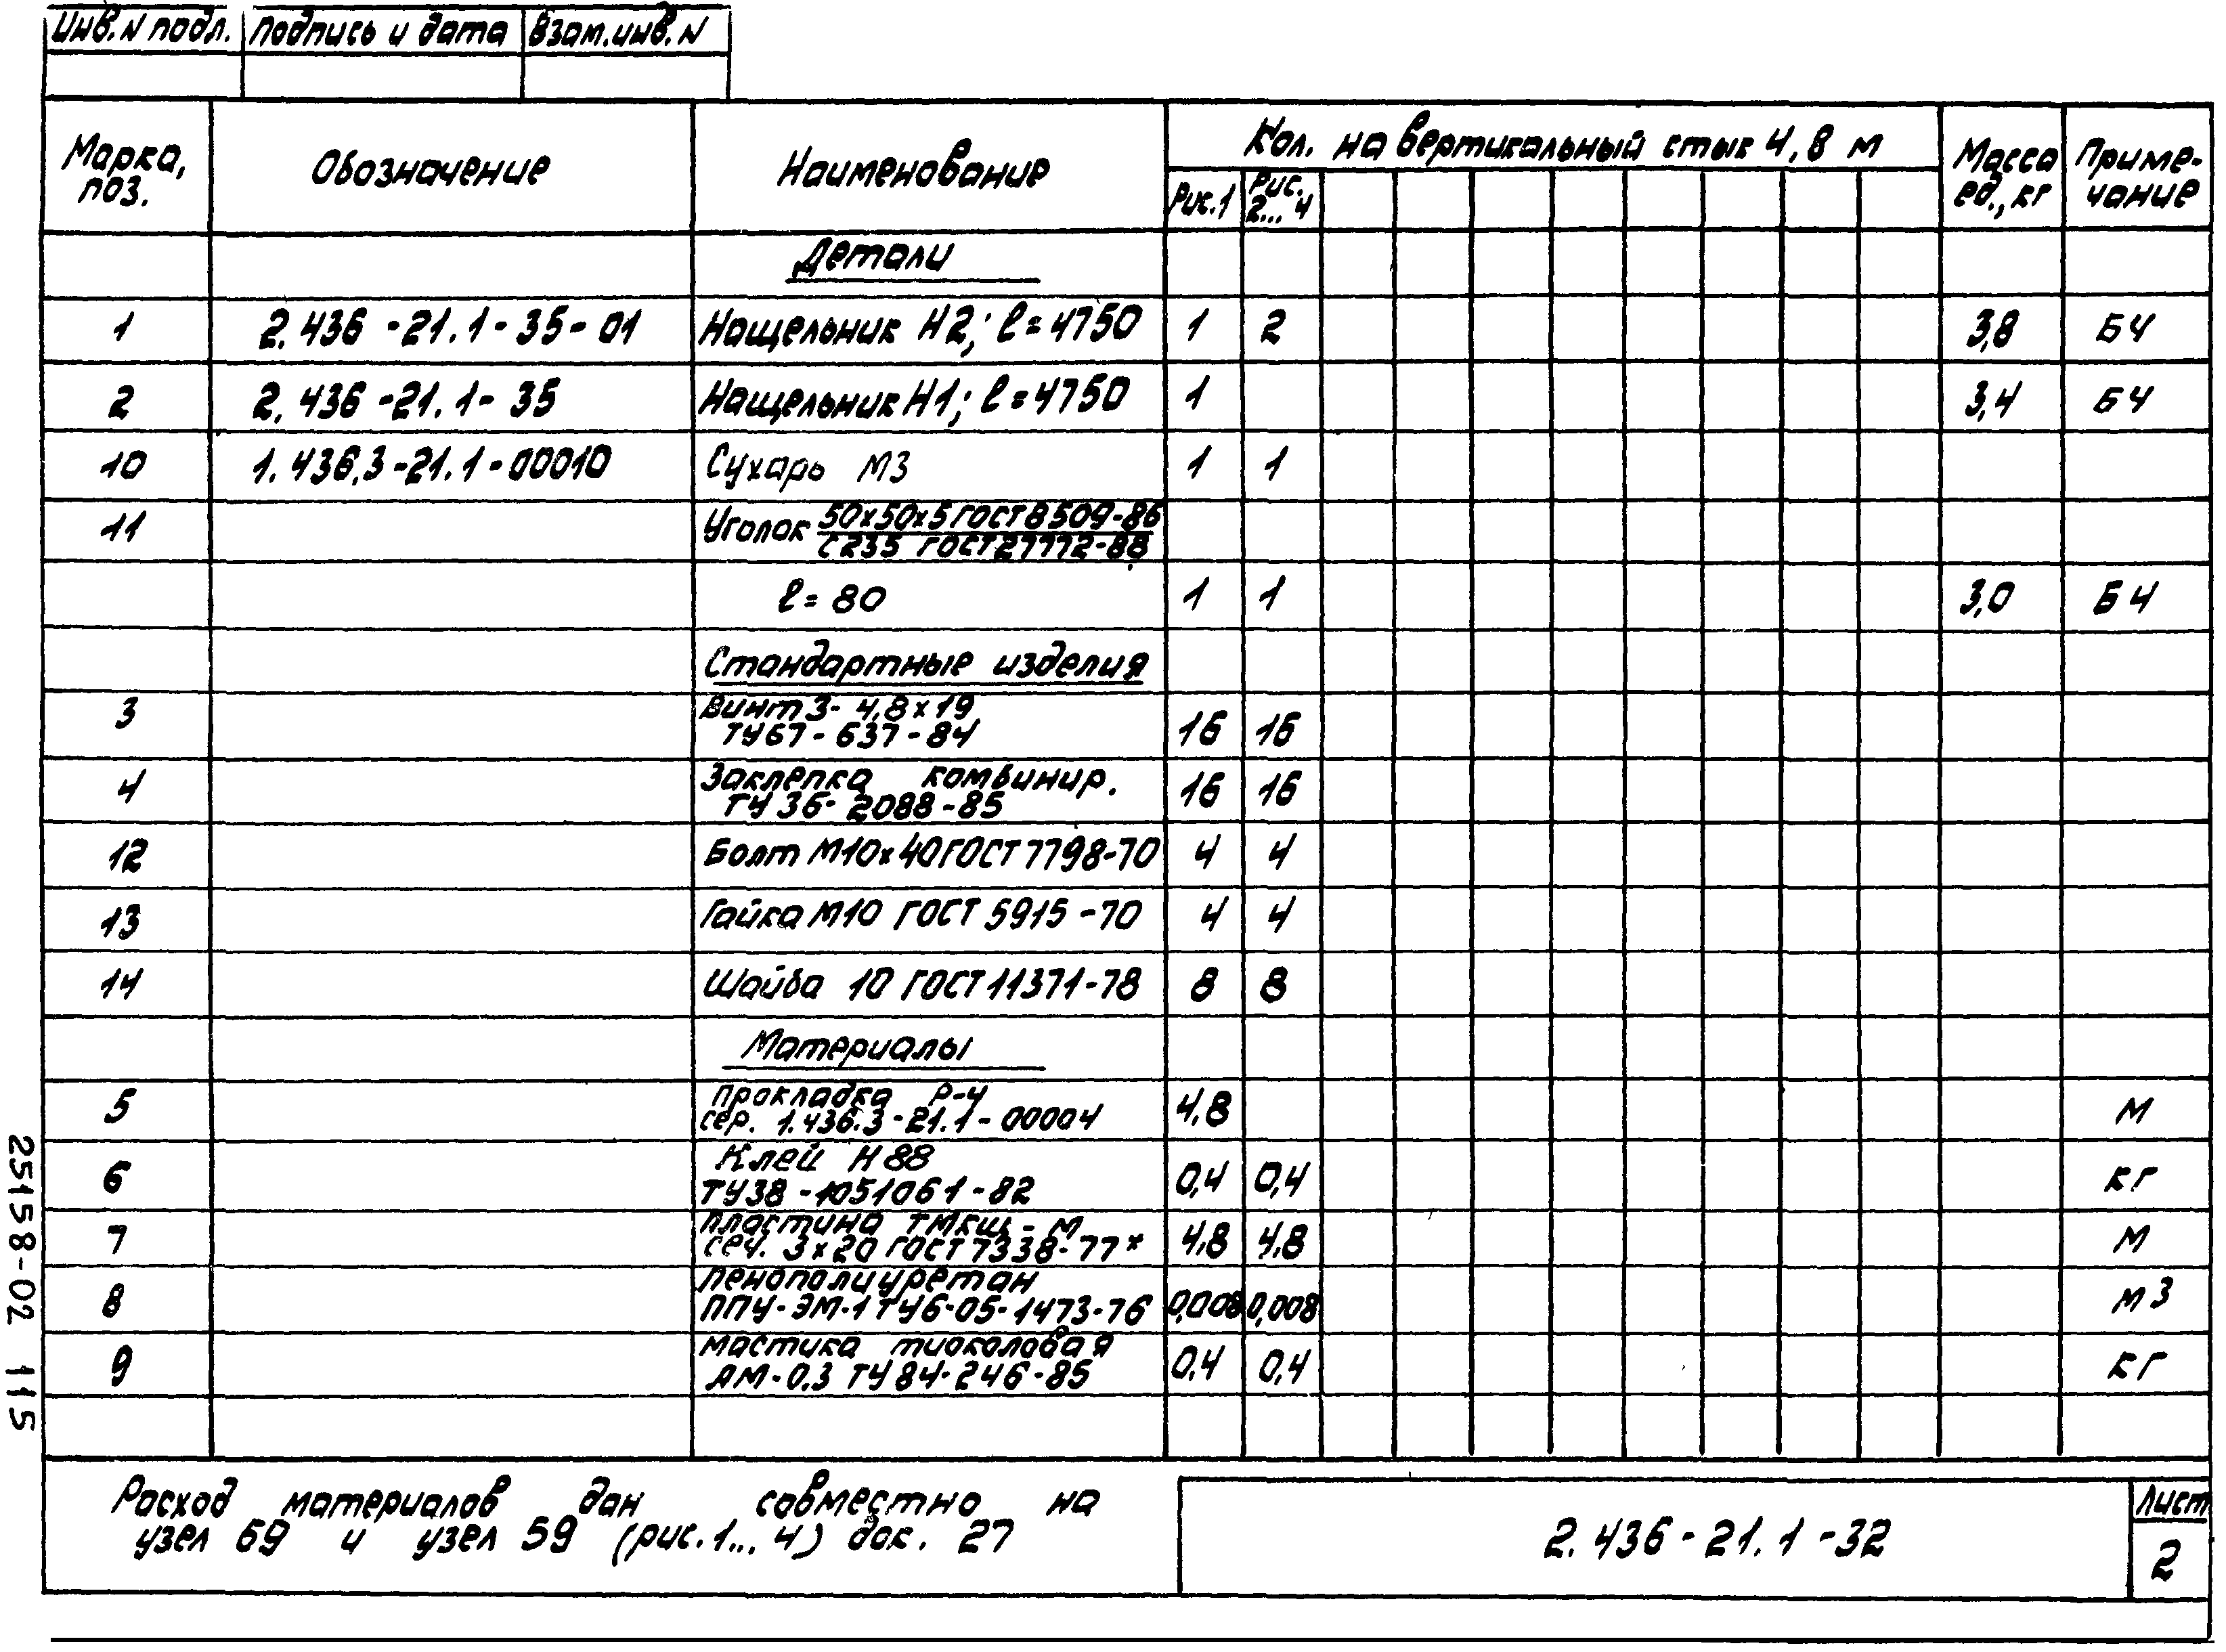 Инв. N подл. Подпись и дата Взам. инв. N
Марка, поз. Обозначение Наименование Кол. на вертикальный стык 4,8 м Масса ед., кг Приме-чание
Рис.1 Рис. 2... 4
Детали
1 2.436-21.1-35-01 Нащельник Н2; ℓ=4750 1 2 3,8 БЧ
2 2.436-21.1-35 Нащельник Н1; ℓ=4750 1 3,4 БЧ
10 1.436.3-21.1-00010 Сухарь М3 1 1
11 Уголок 50х50х5 ГОСТ 8509-86
С235 ГОСТ 27772-88
ℓ=80 1 1 3,0 БЧ
Стандартные изделия
3 Винт 3-4,8х19
ТУ67-637-84 16 16
4 Заклепка комбинир.
ТУ 36-2088-85 16 16
12 Болт М10х40 ГОСТ 7798-70 4 4
13 Гайка М10 ГОСТ 5915-70 4 4
14 Шайба 10 ГОСТ 11371-78 8 8
Материалы
5 Прокладка Р-4
сер. 1.436.3-21.1-00004 4,8 м
6 Клей Н88
ТУ38-1051061-82 0,4 0,4 кг
7 Пластина ТМКЩ-М
сеч. 3х20 ГОСТ 7338-77* 4,8 4,8 м
8 Пенополиуретан
ППУ-ЭМ-1 ТУ6-05-1473-76 0,008 0,008 м3
9 Мастика тиоколовая
АМ-0.3 ТУ84-246-85 0,4 0,4 кг
Расход материалов дан совместно на
узел 69 и узел 59 (рис. 1... 4) док. 27
2.436-21.1-32
Лист
2
25158-02 115